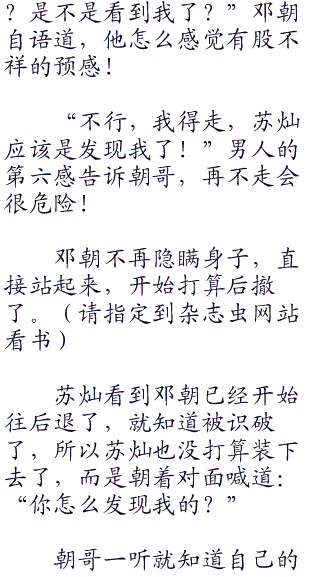 ？是不是看到我了？”邓朝
自语道，他怎么感觉有股不
祥的预感！
“不行，我得走，苏灿
应该是发现我了！”男人的
第六感告诉朝哥，再不走会
很危险！
邓朝不再隐瞒身子，直
接站起来，开始打算后撤
了。（请指定到杂志虫网站
看书）
苏灿看到邓朝已经开始
往后退了，就知道被识破
了，所以苏灿也没打算装下
去了，而是朝着对面喊道：
“你怎么发现我的？”
朝哥一听就知道自己的